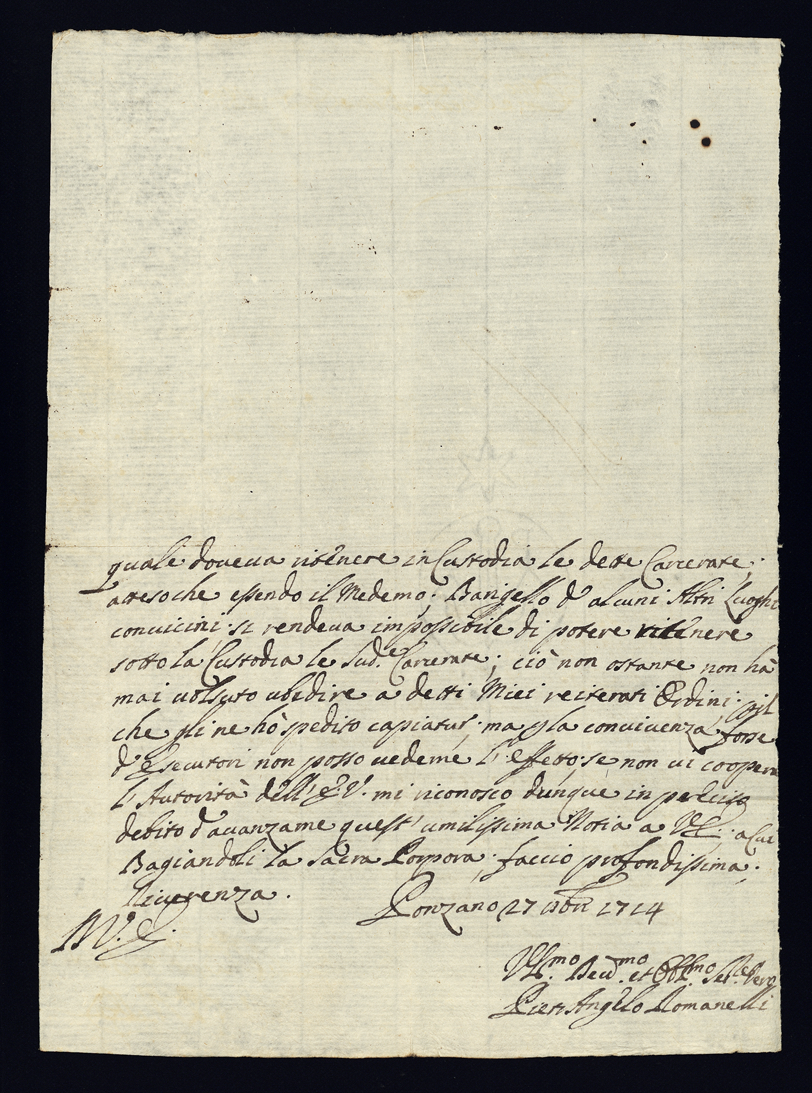 quale doveva ritenere in Custodia le dette Carcerate.
atteso che essendo il Medemo Barigello d'alcuni Altri Luoghi
convicini si rendeva impossibile di potere ritenere
sotto la Custodia le Sud.e Carcerate; ciò non ostante non hà
mai volsuto ubidire a detti Miei reiterati Ordini; p il
che gli ne hò spedito capiatur; ma p la convivenza forse
d'Esecutori non posso vederne l'effetto se non vi coopera
l'Autorità dell'E.V. mi riconosco dunque in preciso
debito d'avanzarne quest'umilissima Notia a V.E.; a Cui
Bagiandoli la Sacra Porpora faccio profondissima
Riverenza.
Ponzano 27 1714
V.E.
Um.mo Dev.mo et Obl.mo Ser.e Vero
Pietr'Angelo Romanelli